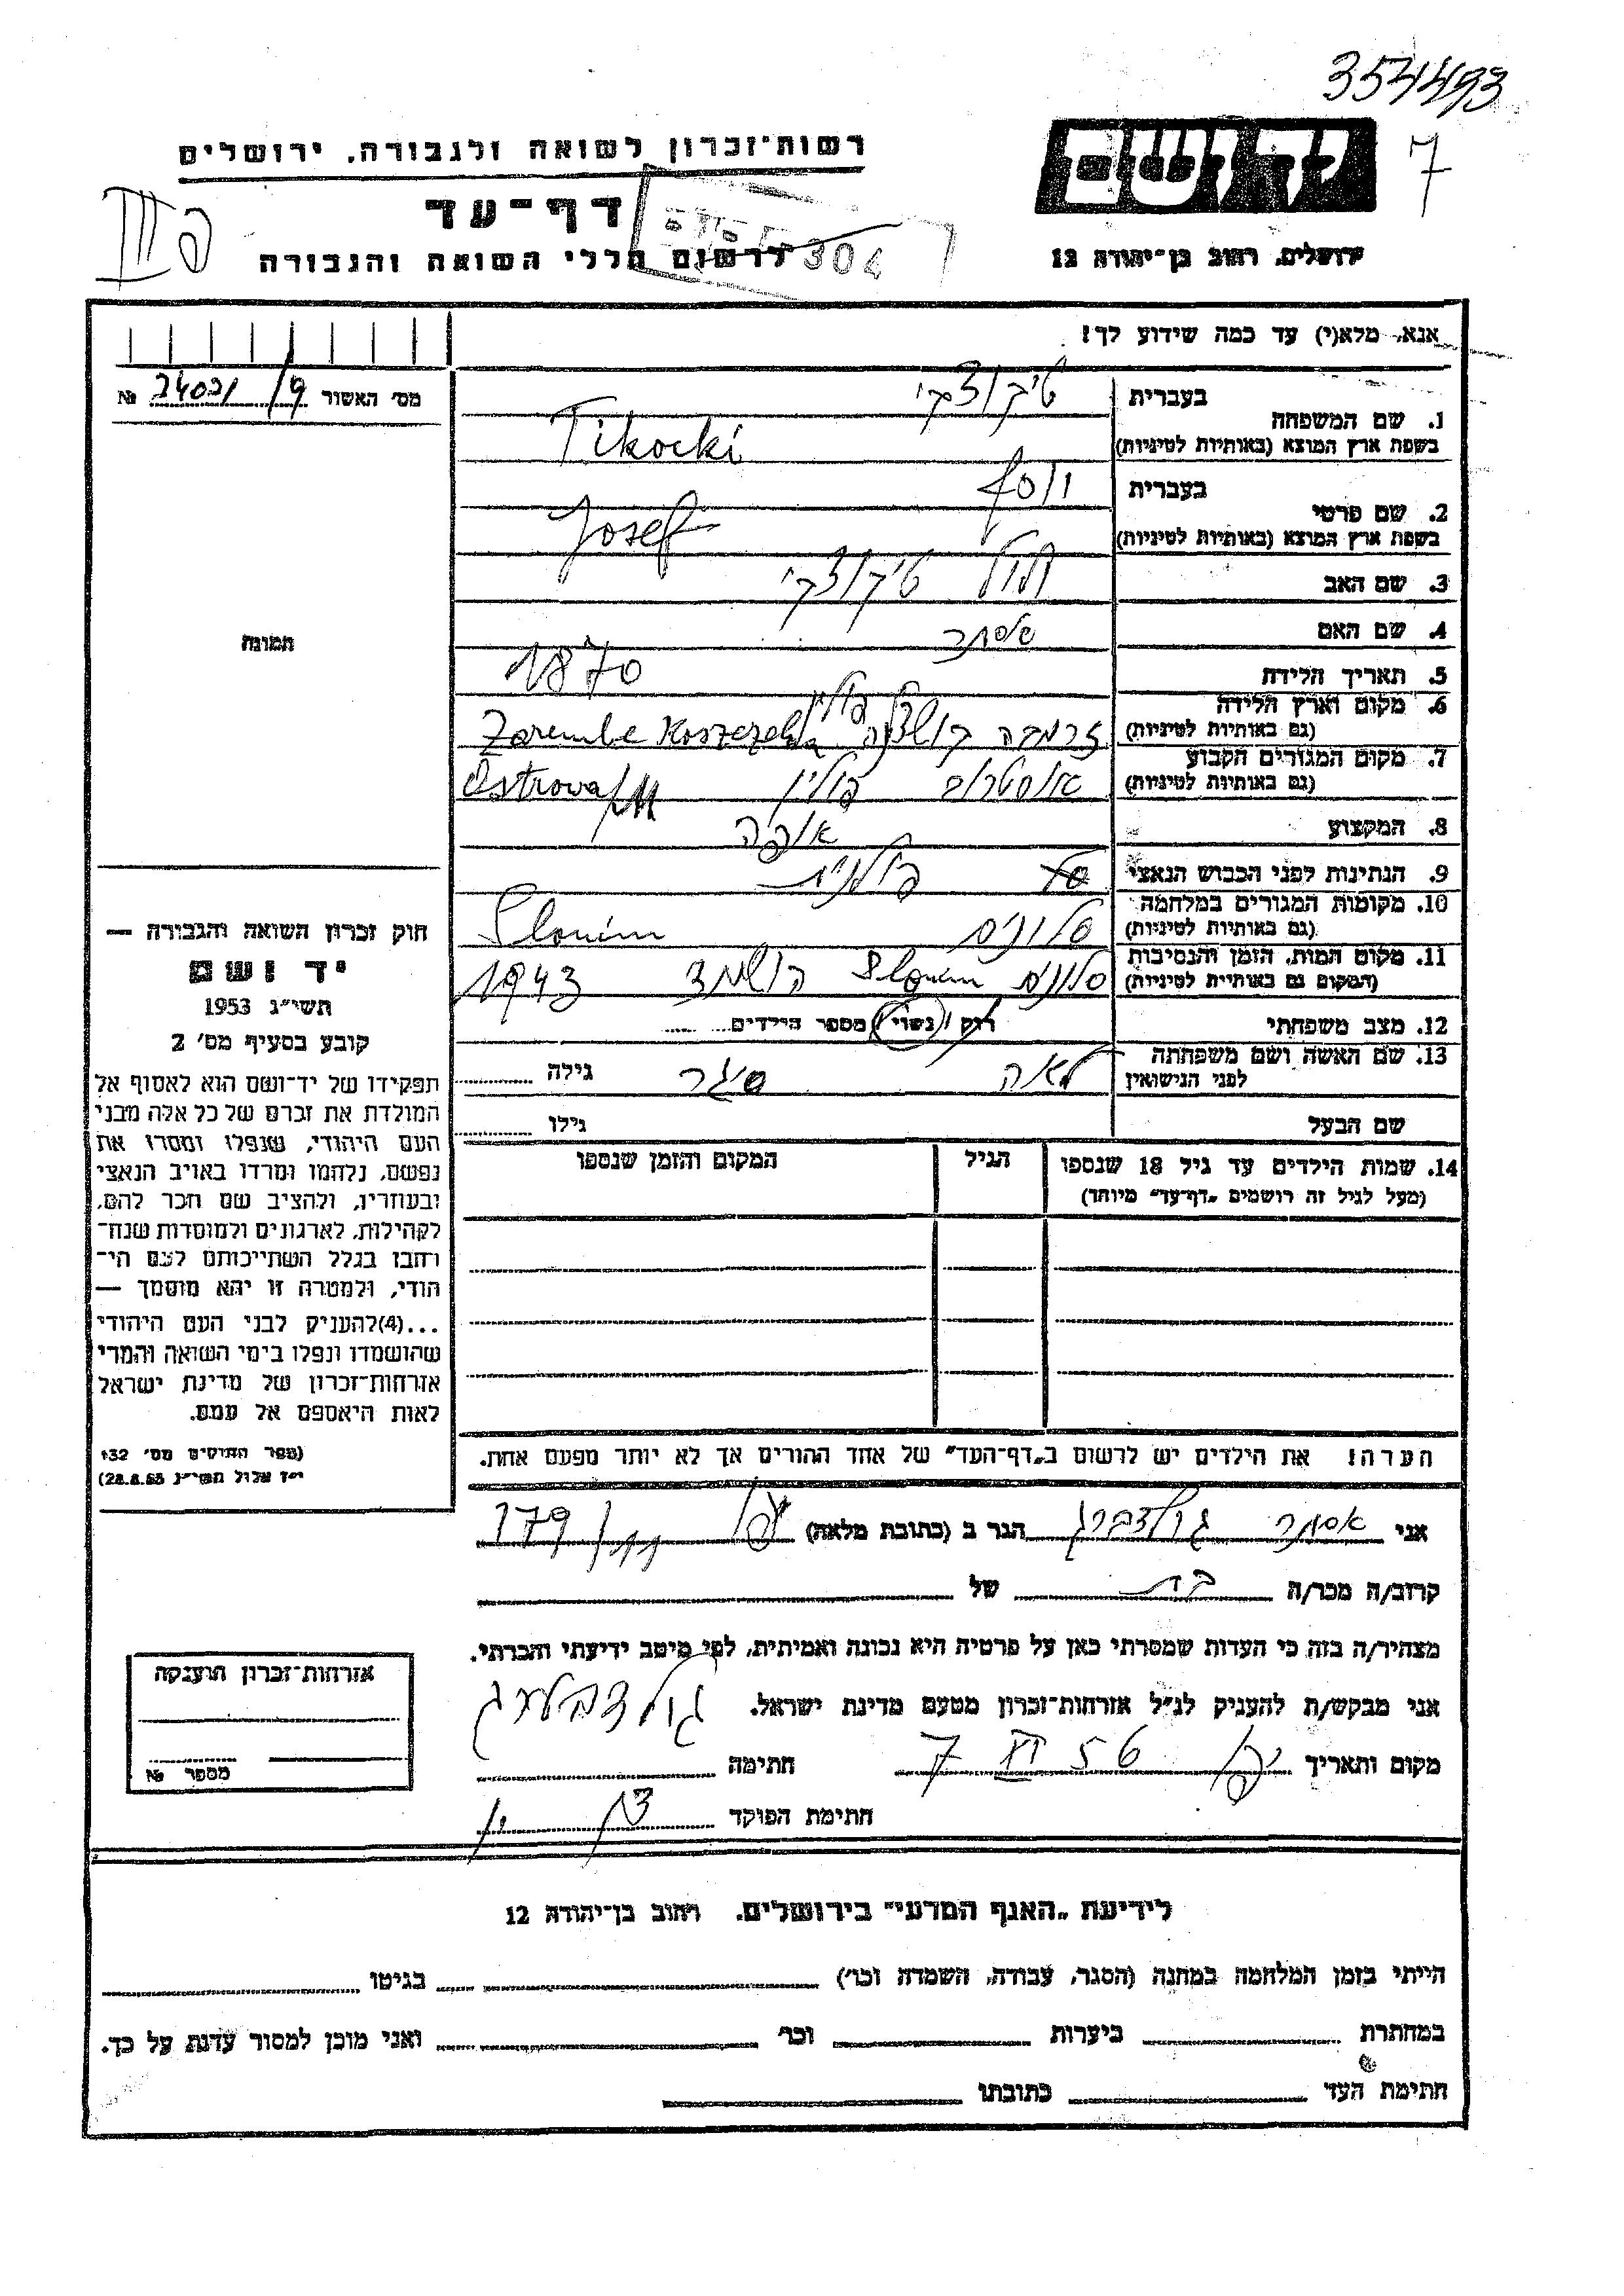 354493
יד ושם
7
רשות־זכרון לשואה ולגבורה, ירושלים
דף־עד
לרשום חללי השואה והגבורה
304
ירושלים, רחוב בן־יהודה 12
אנא, מלא(י) עד כמה שידוע לך!
מס׳ האשור 24021/9 №
1. שם המשפחה בעברית טיקוצקי
בשפת ארץ המוצא (באותיות לטיניות) Tikocki
2. שם פרטי בעברית יוסף
בשפת ארץ המוצא (באותיות לטיניות) Josef
3. שם האב טיקוצקי
4. שם האם
5. תאריך הלידה 1870
6. מקום וארץ הלידה פולין
(גם באותיות לטיניות) זרמבה Zarembe
7. מקום המגורים הקבוע
(גם באותיות לטיניות) אוסטרוב פולין Ostrowa/M
8. המקצוע אופה
9. הנתינות לפני הכבוש הנאצי פולנית
10. מקומות המגורים במלחמה
(גם באותיות לטיניות) סלונים Slonim
11. מקום המות, הזמן והנסיבות
(המקום גם באותיות לטיניות) סלונים Slonim הושמד 1943
12. מצב משפחתי רוק / נשוי / מספר הילדים
13. שם האשה ושם משפחתה
לפני הנישואין לאה סגר גילה
שם הבעל גילו
14. שמות הילדים עד גיל 18 שנספו הגיל המקום והזמן שנספו
(מעל לגיל זה רושמים „דף־עד״ מיוחד)
תמונה
חוק זכרון השואה והגבורה —
יד ושם
תשי״ג 1953
קובע בסעיף מס׳ 2
תפקידו של יד־ושם הוא לאסוף אל
המולדת את זכרם של כל אלה מבני
העם היהודי, שנפלו ומסרו את
נפשם, נלחמו ומרדו באויב הנאצי
ובעוזריו, ולהציב שם וזכר להם,
לקהילות, לארגונים ולמוסדות שנח־
רבו בגלל השתייכותם לעם הי־
הודי, ולמטרה זו יהא מוסמך —
...(4)להעניק לבני העם היהודי
שהושמדו ונפלו בימי השואה והמרי
אזרחות־זכרון של מדינת ישראל
לאות היאספם אל עמם.
(ספר החוקים מס׳ 132
י״ז אלול תשי״ג 28.8.53)
הערה! את הילדים יש לרשום ב„דף־העד״ של אחד ההורים אך לא יותר מפעם אחת.
אני אסתר גולדברג הגר ב (כתובת מלאה) יפו 179/11
קרוב/ה מכר/ה בת של
מצהיר/ה בזה כי העדות שמסרתי כאן על פרטיה היא נכונה ואמיתית, לפי מיטב ידיעתי והכרתי.
אני מבקש/ת להעניק לנ״ל אזרחות־זכרון מטעם מדינת ישראל. גולדברג
מקום ותאריך יפו 7 VI 56 חתימה
חתימת הפוקד
אזרחות־זכרון הוענקה
מספר №
לידיעת „האגף המדעי״ בירושלים, רחוב בן־יהודה 12
הייתי בזמן המלחמה במחנה (הסגר, עבודה, השמדה וכו׳) בגיטו
במחתרת ביערות וכו׳ ואני מוכן למסור עדות על כך.
חתימת העד כתובתו